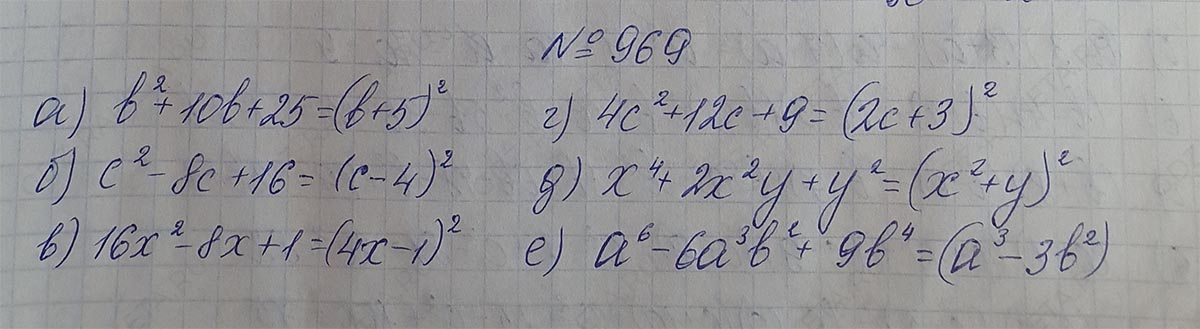 № 969
а) b²+10b+25=(b+5)²
б) c²-8c+16=(c-4)²
в) 16x²-8x+1=(4x-1)²
г) 4c²+12c+9=(2c+3)²
д) x⁴+2x²y+y²=(x²+y)²
е) a⁶-6a³b²+9b⁴=(a³-3b²)